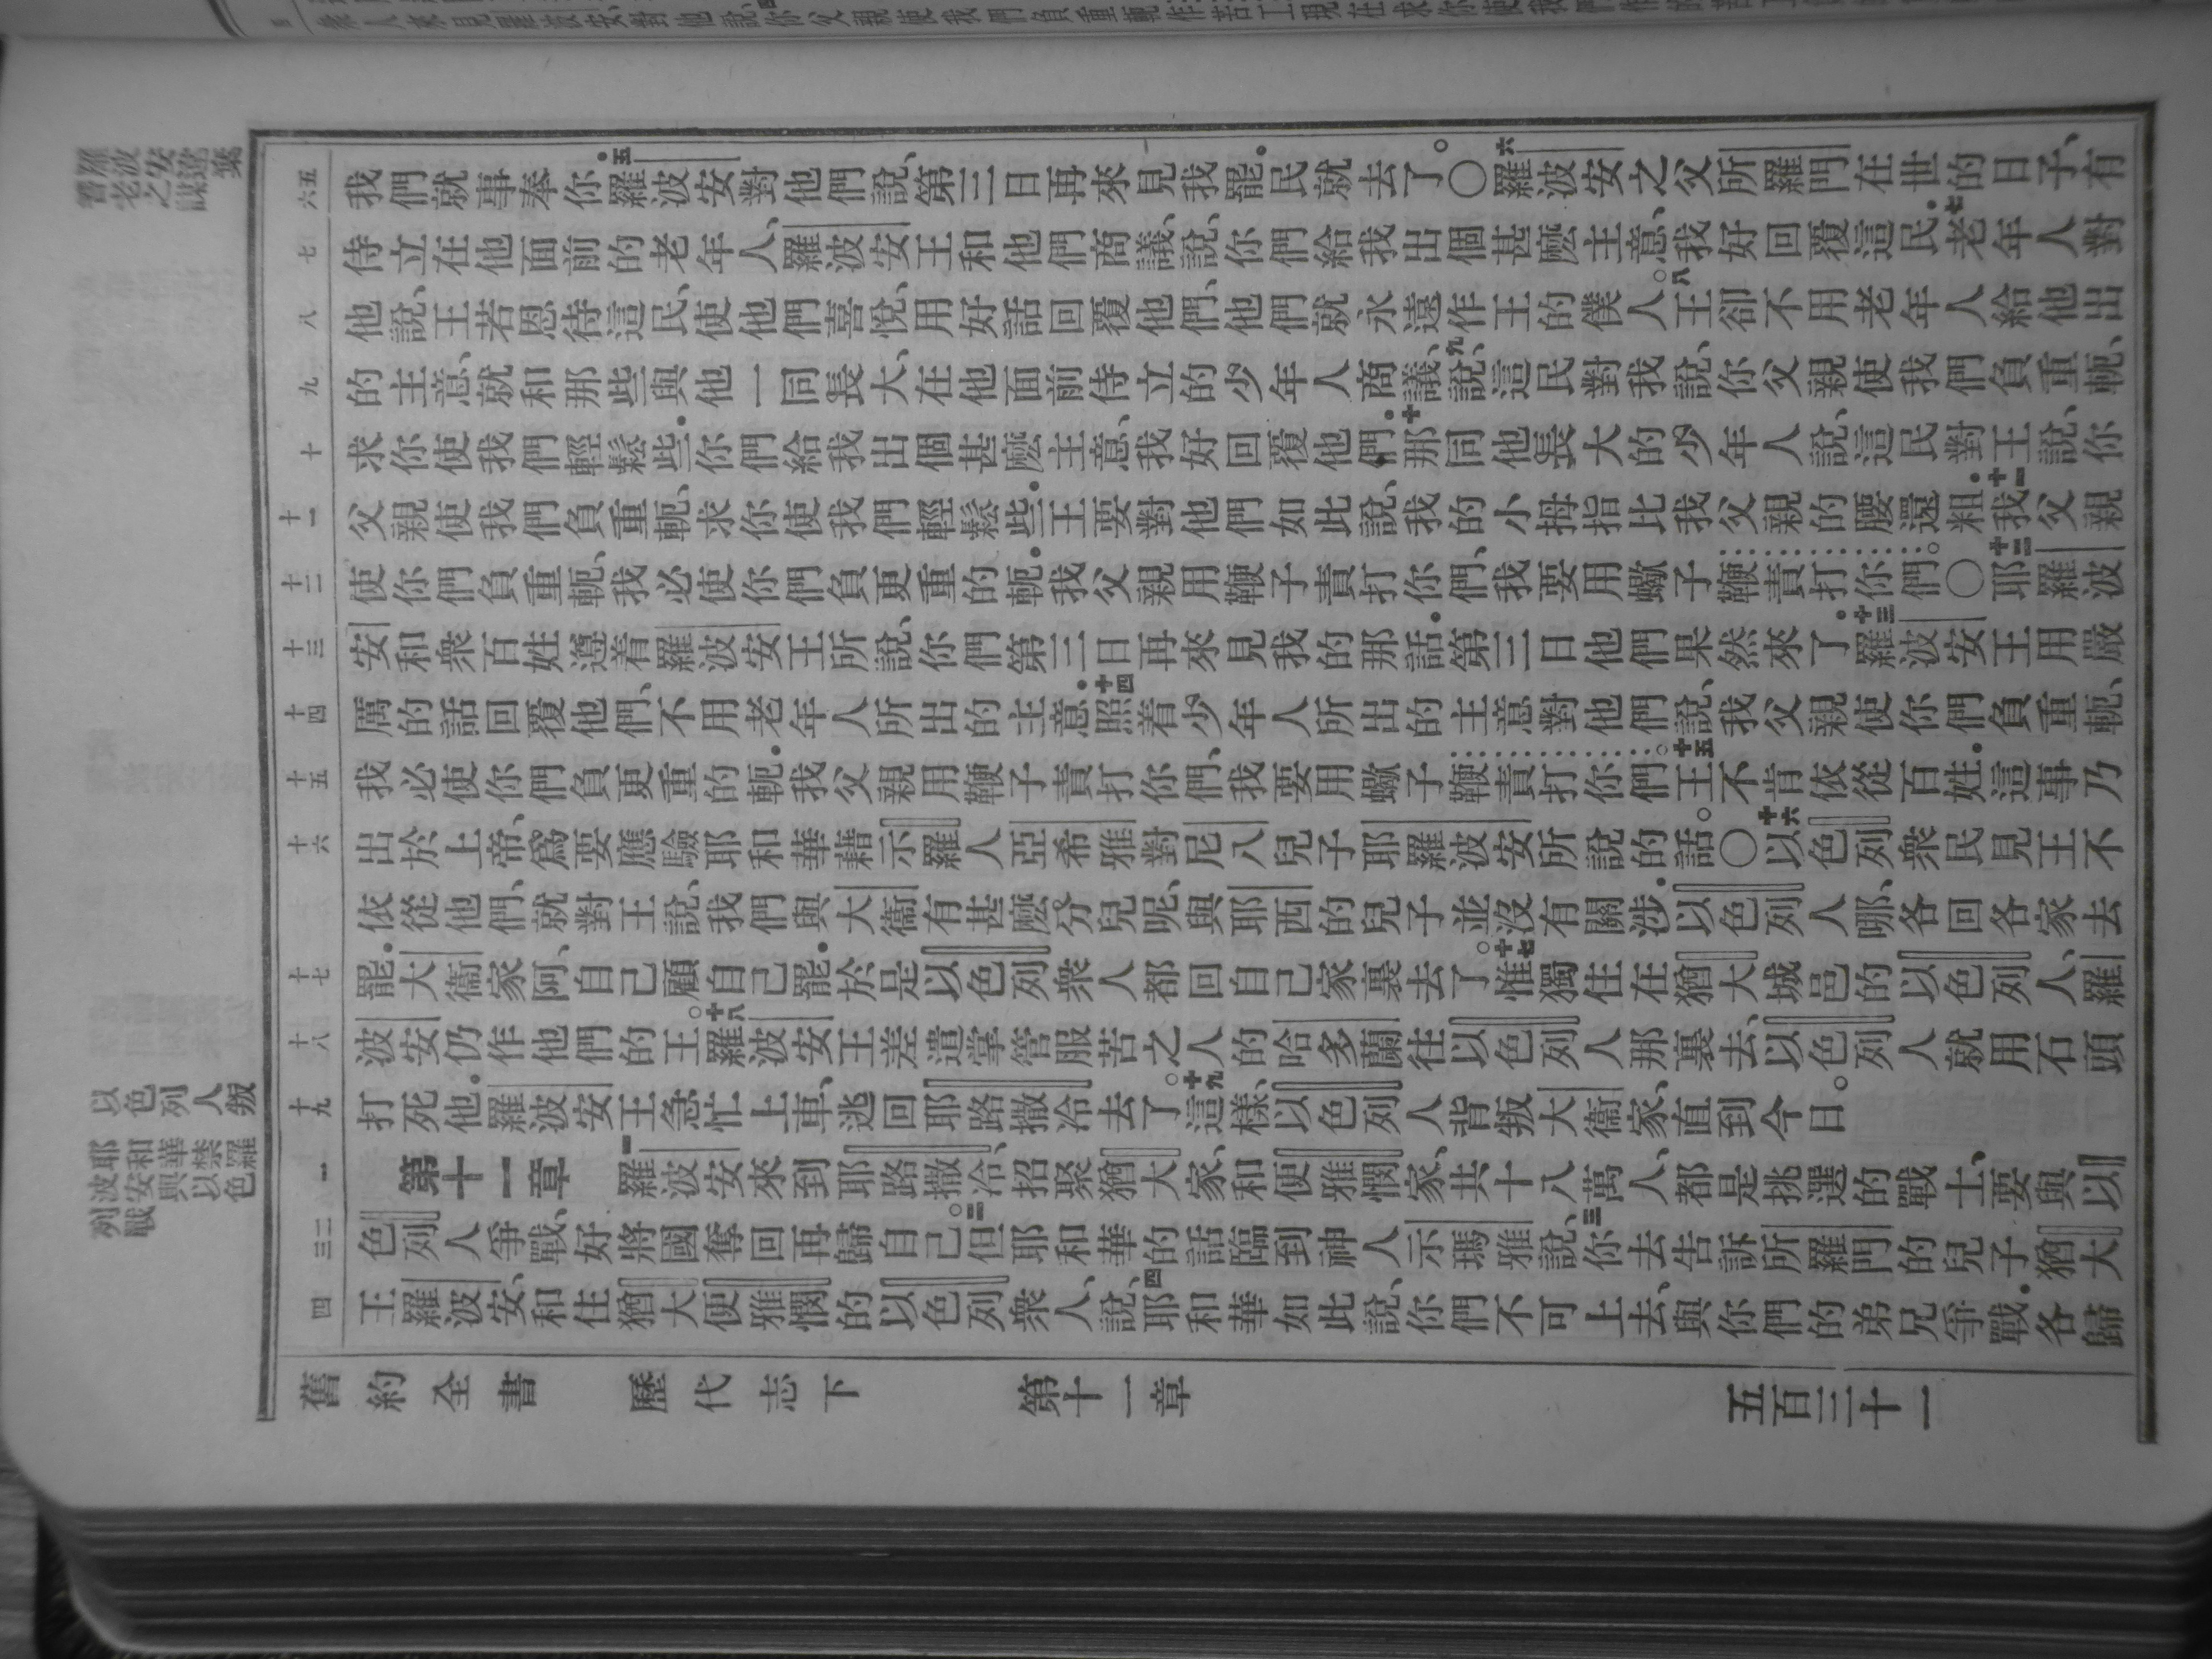 羅波安違棄
耆老之謀
以色列人叛
耶和華禁羅
波安與以色
列戰
五 六
七
八
九
十
十一
十二
十三
十四
十五
十六
十七
十八
十九
一
二 三
四
我們就事奉你.五羅波安對他們說、第三日再來見我罷.民就去了。〇六羅波安之父所羅門在世的日子、有
侍立在他面前的老年人、羅波安王和他們商議、說、你們給我出個甚麼主意、我好回覆這民.七老年人對
他說、王若恩待這民、使他們喜悅、用好話回覆他們、他們就永遠作王的僕人。八王卻不用老年人給他出
的主意、就和那些與他一同長大、在他面前侍立的少年人商議、九說、這民對我說、你父親使我們負重軛、
求你使我們輕鬆些.你們給我出個甚麼主意、我好回覆他們.十那同他長大的少年人說、這民對王說、你
父親使我們負重軛、求你使我們輕鬆些.王要對他們如此說、我的小拇指比我父親的腰還粗.十一我父親
使你們負重軛、我必使你們負更重的軛.我父親用鞭子責打你們、我要用蠍子鞭責打你們。〇十二耶羅波
安和衆百姓遵着羅波安王所說、你們第三日再來見我的那話.第三日他們果然來了.十三羅波安王用嚴
厲的話回覆他們、不用老年人所出的主意.十四照着少年人所出的主意對他們說、我父親使你們負重軛、
我必使你們負更重的軛.我父親用鞭子責打你們、我要用蠍子鞭責打你們。十五王不肯依從百姓.這事乃
出於上帝、爲要應驗耶和華藉示羅人亞希雅對尼八兒子耶羅波安所說的話。〇十六以色列衆民見王不
依從他們、就對王說、我們與大衞有甚麼分兒呢、與耶西的兒子並沒有關涉.以色列人哪、各回各家去
罷.大衞家阿、自己顧自己罷.於是以色列衆人都回自己家裏去了。十七惟獨住在猶大城邑的以色列人、羅
波安仍作他們的王。十八羅波安王差遣掌管服苦之人的哈多蘭往以色列人那裏去、以色列人就用石頭
打死他.羅波安王急忙上車、逃回耶路撒冷去了。十九這樣、以色列人背叛大衞家、直到今日。
第十一章 一羅波安來到耶路撒冷、招聚猶大家、和便雅憫家、共十八萬人、都是挑選的戰士、要與以
色列人爭戰、好將國奪回再歸自己。二但耶和華的話臨到神人示瑪雅說、三你去告訴所羅門的兒子猶大
王羅波安、和住猶大便雅憫的以色列衆人、說、四耶和華如此說、你們不可上去、與你們的弟兄爭戰.各歸
舊約全書 歷代志下 第十一章 五百三十一